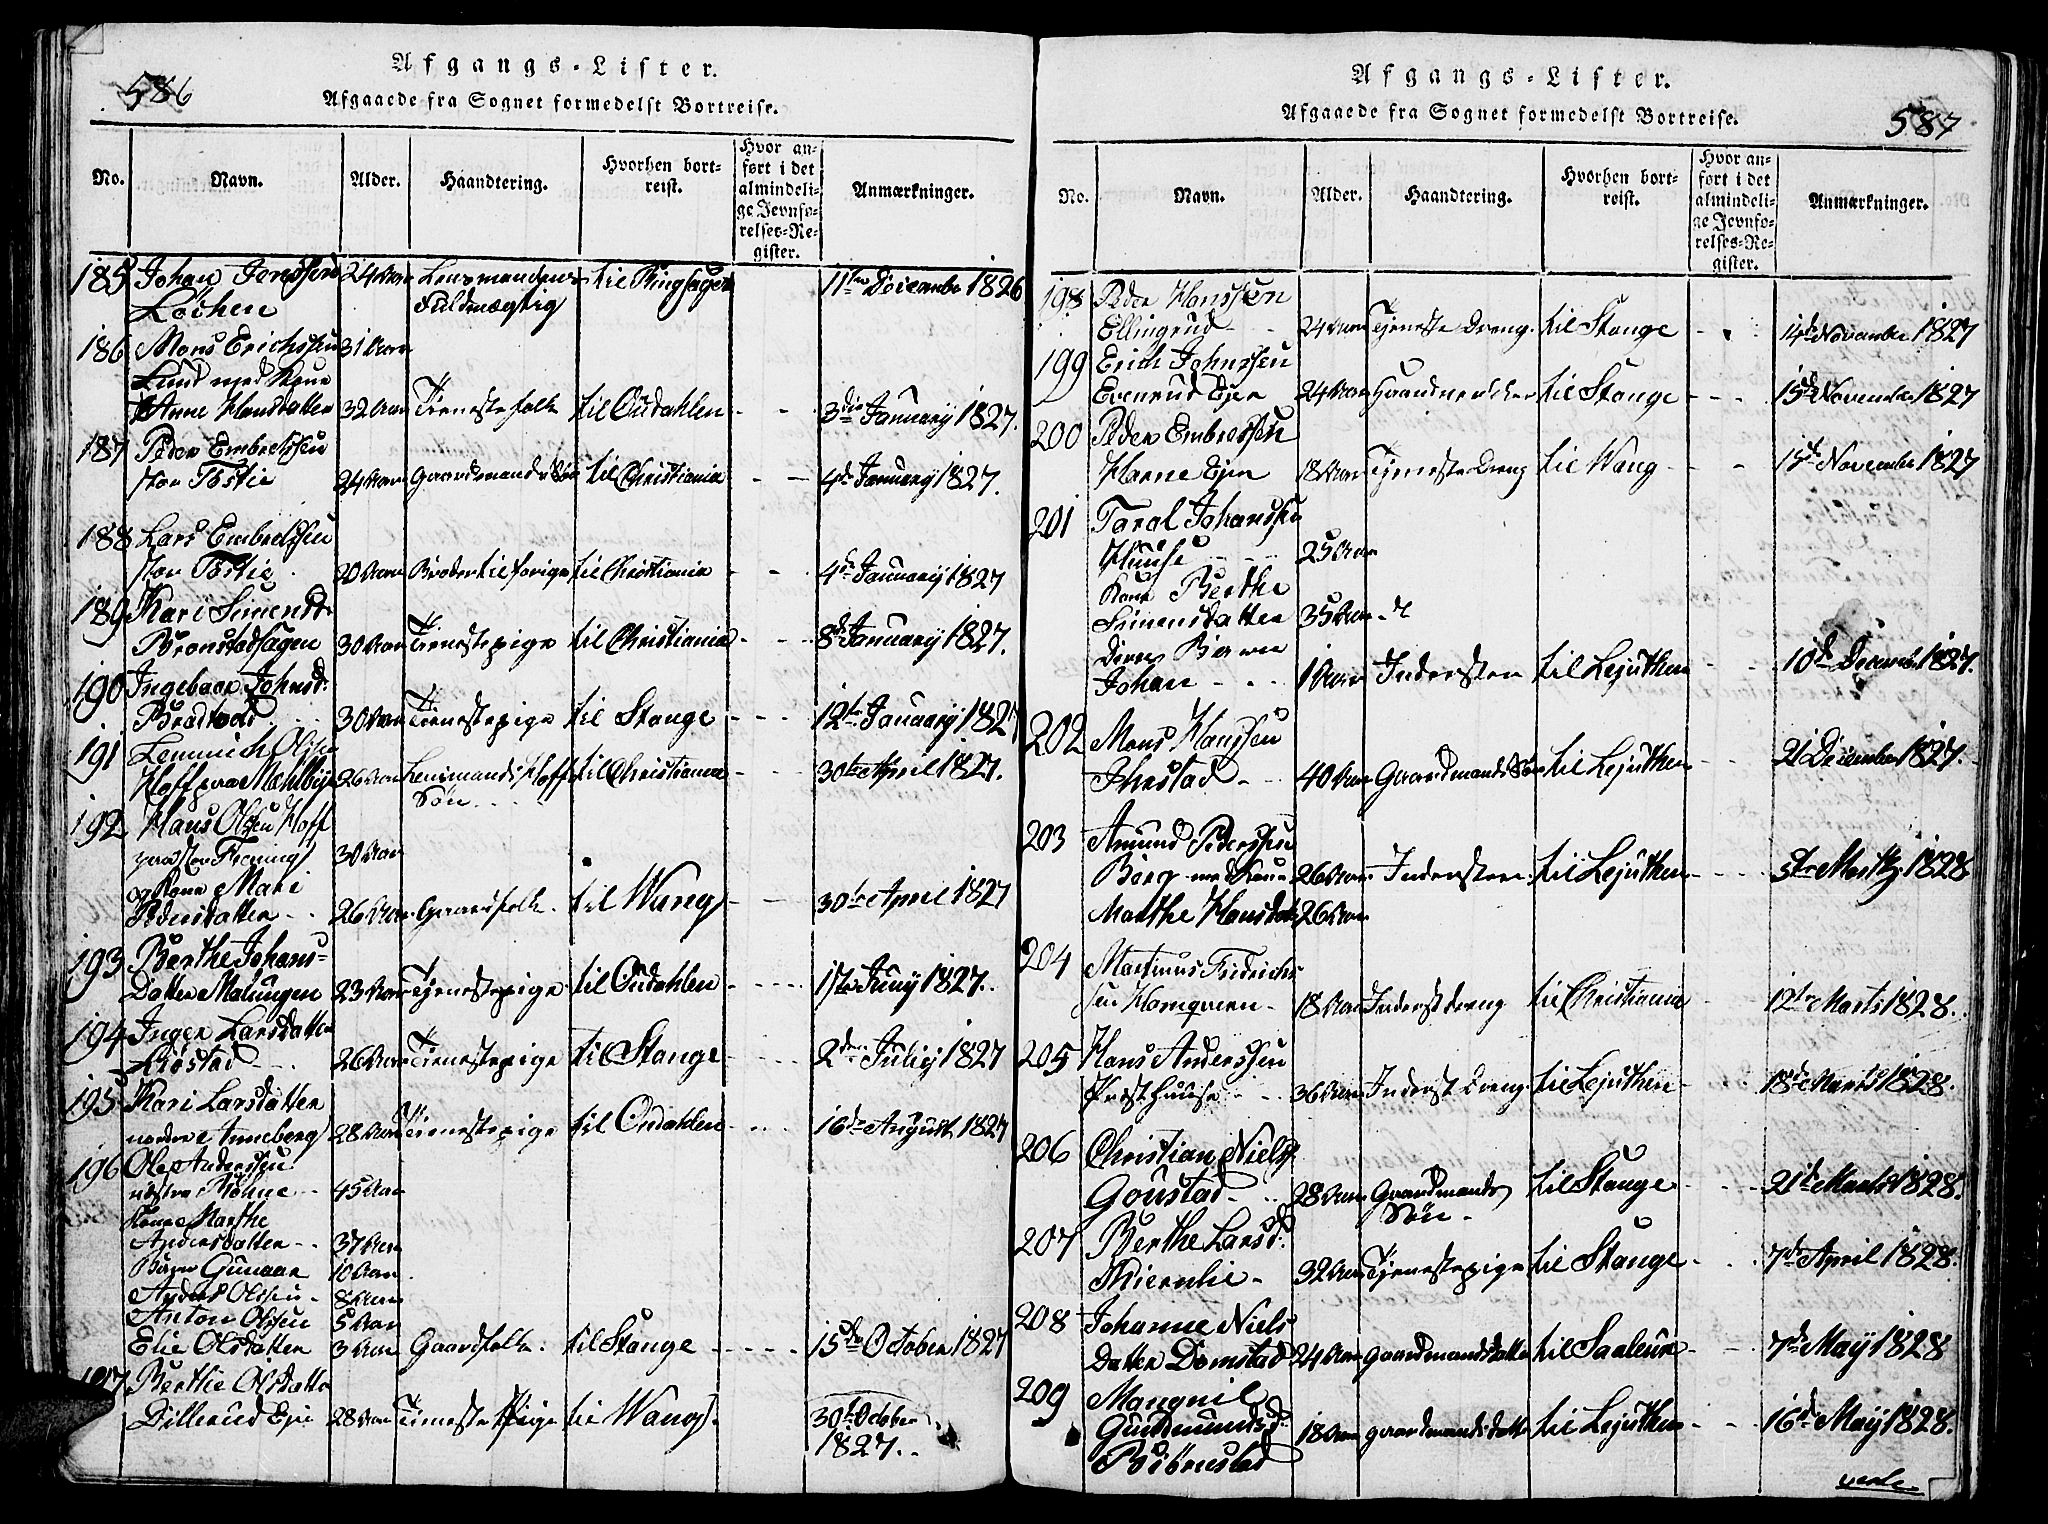 586
Afgangs-Lister.
Afgaaede fra Sognet formedelst Bortreise.
No. Navn. Alder. Haandtering. Hvorhen bortreist. Hvor anført i det almindelige Jevnførelses-Register. Anmærkninger.
185 Johan Jenssen 24 Aar Lensmandens til Ringsager 11te December 1826
Lochen Fuldmægtig
186 Mons Erichssen 31 Aar
Lund med Kone
Anne Hansdatter 32 Aar Tienestefolk til Oudahlen - - 3die January 1827.
187 Peder Embretssen
stor Tostie 24 Aar Gaardmands Søn til Christiania - - 4de January 1827.
188 Lars Embretssen
stor Tostie 20 Aar Broder til forige til Christiania - - 4de January 1827
189 Kari Simensd:
Bronstadhagen 30 Aar Tienestepige til Christiania - - 8de January 1827.
190 Ingebaar Johnsd:
30 Aar Tienestepige til Stange - - - 12te January 1827
191 Lemmich Olssen
Hoff paa Mæhlbye 26 Aar Lensmand Hoffs til Christiania - - - 30te April 1827.
Søn
192 Hans Olssen Hoff
paa stor 30 Aar
og Kone Mari
Pedersdatter - - 26 Aar Gaardfolk. til Wang - - 30te April 1827
193 Berthe Johans=
Datter Malungen 23 Aar Tjenestepige til Oudahlen - - - - 17te Juny 1827.
194 Inger Larsdatter
26 Aar Tienestepige til Stange - - - - 2den July 1827
195 Kari Larsdatter
nordre Anneberg 28 Aar Tienestepige til Oudahlen - - - - 16de August 1827
196 Ole Anderssen
45 Aar
Kone Marthe
Andersdatter - - 37 Aar
Børn Gunaar 10 Aar
Anders Olssen - 8 Aar
Anton Olssen 5 Aar
Elie Olsdatter 3 Aar Gaardfolk. til Stange - - - - - 15de October 1827
197 Berthe Olsdatter
Dillerud Eje 28 Aar Tieneste Pige til Wang - 30te October
1827.
587
Afgangs-Lister.
Afgaaede fra Sognet formedelst Bortreise.
No. Navn. Alder. Haandtering. Hvorhen bortreist. Hvor anført i det almindelige Jevnførelses-Register. Anmærkninger.
198 Peder Hanssen
Ellingrud - - 24 Aar Tjeneste Dreng. til Stange - - 14de November 1827
199 Erich Johnssen
Evenrud Ejer 24 Aar til Stange - - - 15de November 1827
200 Peder Embretssen
Ejer 18 Aar Tjeneste Dreng til Wang - - 17de November 1827
201 Johanssen
Huuse - - - 25 Aar
Kone Berthe
Simensdatter 35 Aar
Deres Barn
Johan - - - 1 Aar Indersten til Lejuthen - - 10de December 1827.
202 Mons Hanssen
40 Aar Gaardmands Søn til Lejuthen - - 21 December 1827.
203 Amund Pederssen
Borg med Kone 26 Aar Indersten. til Lejuthen - - - 5te Martz 1828
Marthe Hansdatter 26 Aar
204 Martinus Fredrichs
sen Kornqveen - 18 Aar Inderstdreng til Christiania - - 12te Marts 1828.
205 Hans Anderssen
Præsthuuse - - 36 Aar Inderst Dreng til Lejuthen - 18de Marts 1828.
206 Christian Niels
Goustad - - 28 Aar Gaardmands til Stange - - - 21de Marts 1828.
Søn -
207 Berthe Larsd:
Skiernlie - 32 Aar Tjenestepige til Stange - - 7de April 1828.
208 Johanne Niels
Datter Domstad 24 Aar gaardmandsdatter til - - 7de May 1828
209 Mangnil
Gudmundsd: 18 Aar gaardmandsdatter til Lejuthen - - 16de May 1828.